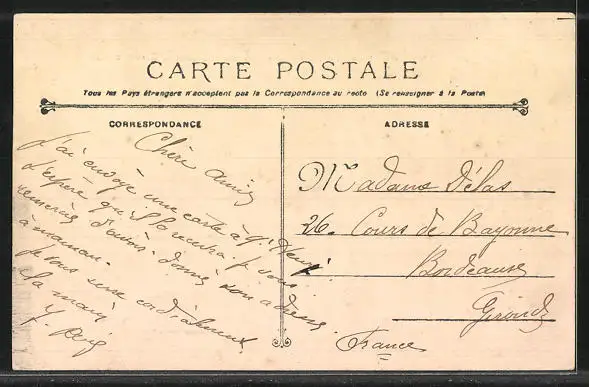 CARTE POSTALE
Tous les Pays étrangers n'acceptent pas la Correspondance au recto (Se renseigner à la Poste)
CORRESPONDANCE
Chère amie
J'ai envoyé une carte à Mr
J'espère qu'il la recevra. Je vous
remercie d'avoir donné son adresse
à maman.
Je vous serre cordialement
la main
ADRESSE
Madame Délas
26. Cours de Bayonne
Bordeaux
Gironde
France